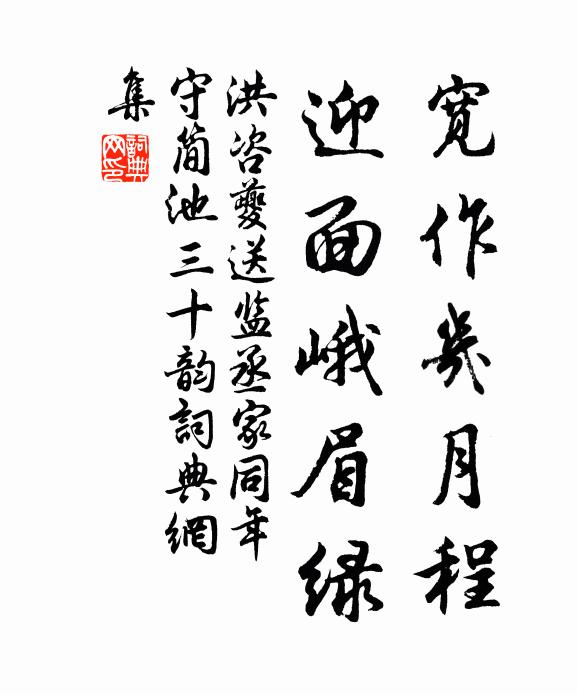 宽作幾月程
迎面峨眉绿
洪咨夔送监丞家同年
守简池三十韵詞典網
集
詞典
网印